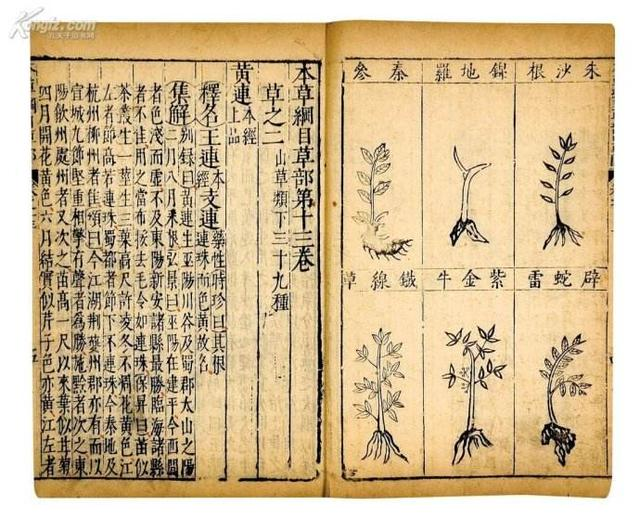 朱沙根
錦地羅
秦參
辟蛇雷
紫金牛
鐵線草
本草綱目草部第十三卷
草之二 山草類下三十九種
黃連 本經上品
釋名王連本經支連藥性時珍曰其根連珠而色黃故名
集解別錄曰黃連生巫陽川谷及蜀郡太山之陽二八月采根弘景曰巫陽在建平今西間
者色淺而虛不及東陽新安諸縣最勝臨海諸縣
者不佳用之當布挼去毛令如連珠保昇曰苗似
茶叢生一莖生三葉高尺許凌冬不凋花黃色江
左者節高若連珠蜀都者節下不連珠今秦地及
杭州柳州者佳頌曰今江湖荊夔州郡亦有而以
宣城九節堅重相擊有聲者爲勝施黔者次之東
陽歙州處州者又次之苗高一尺以來葉似甘菊
四月開花黃色六月結實似芹子色亦黃江左者